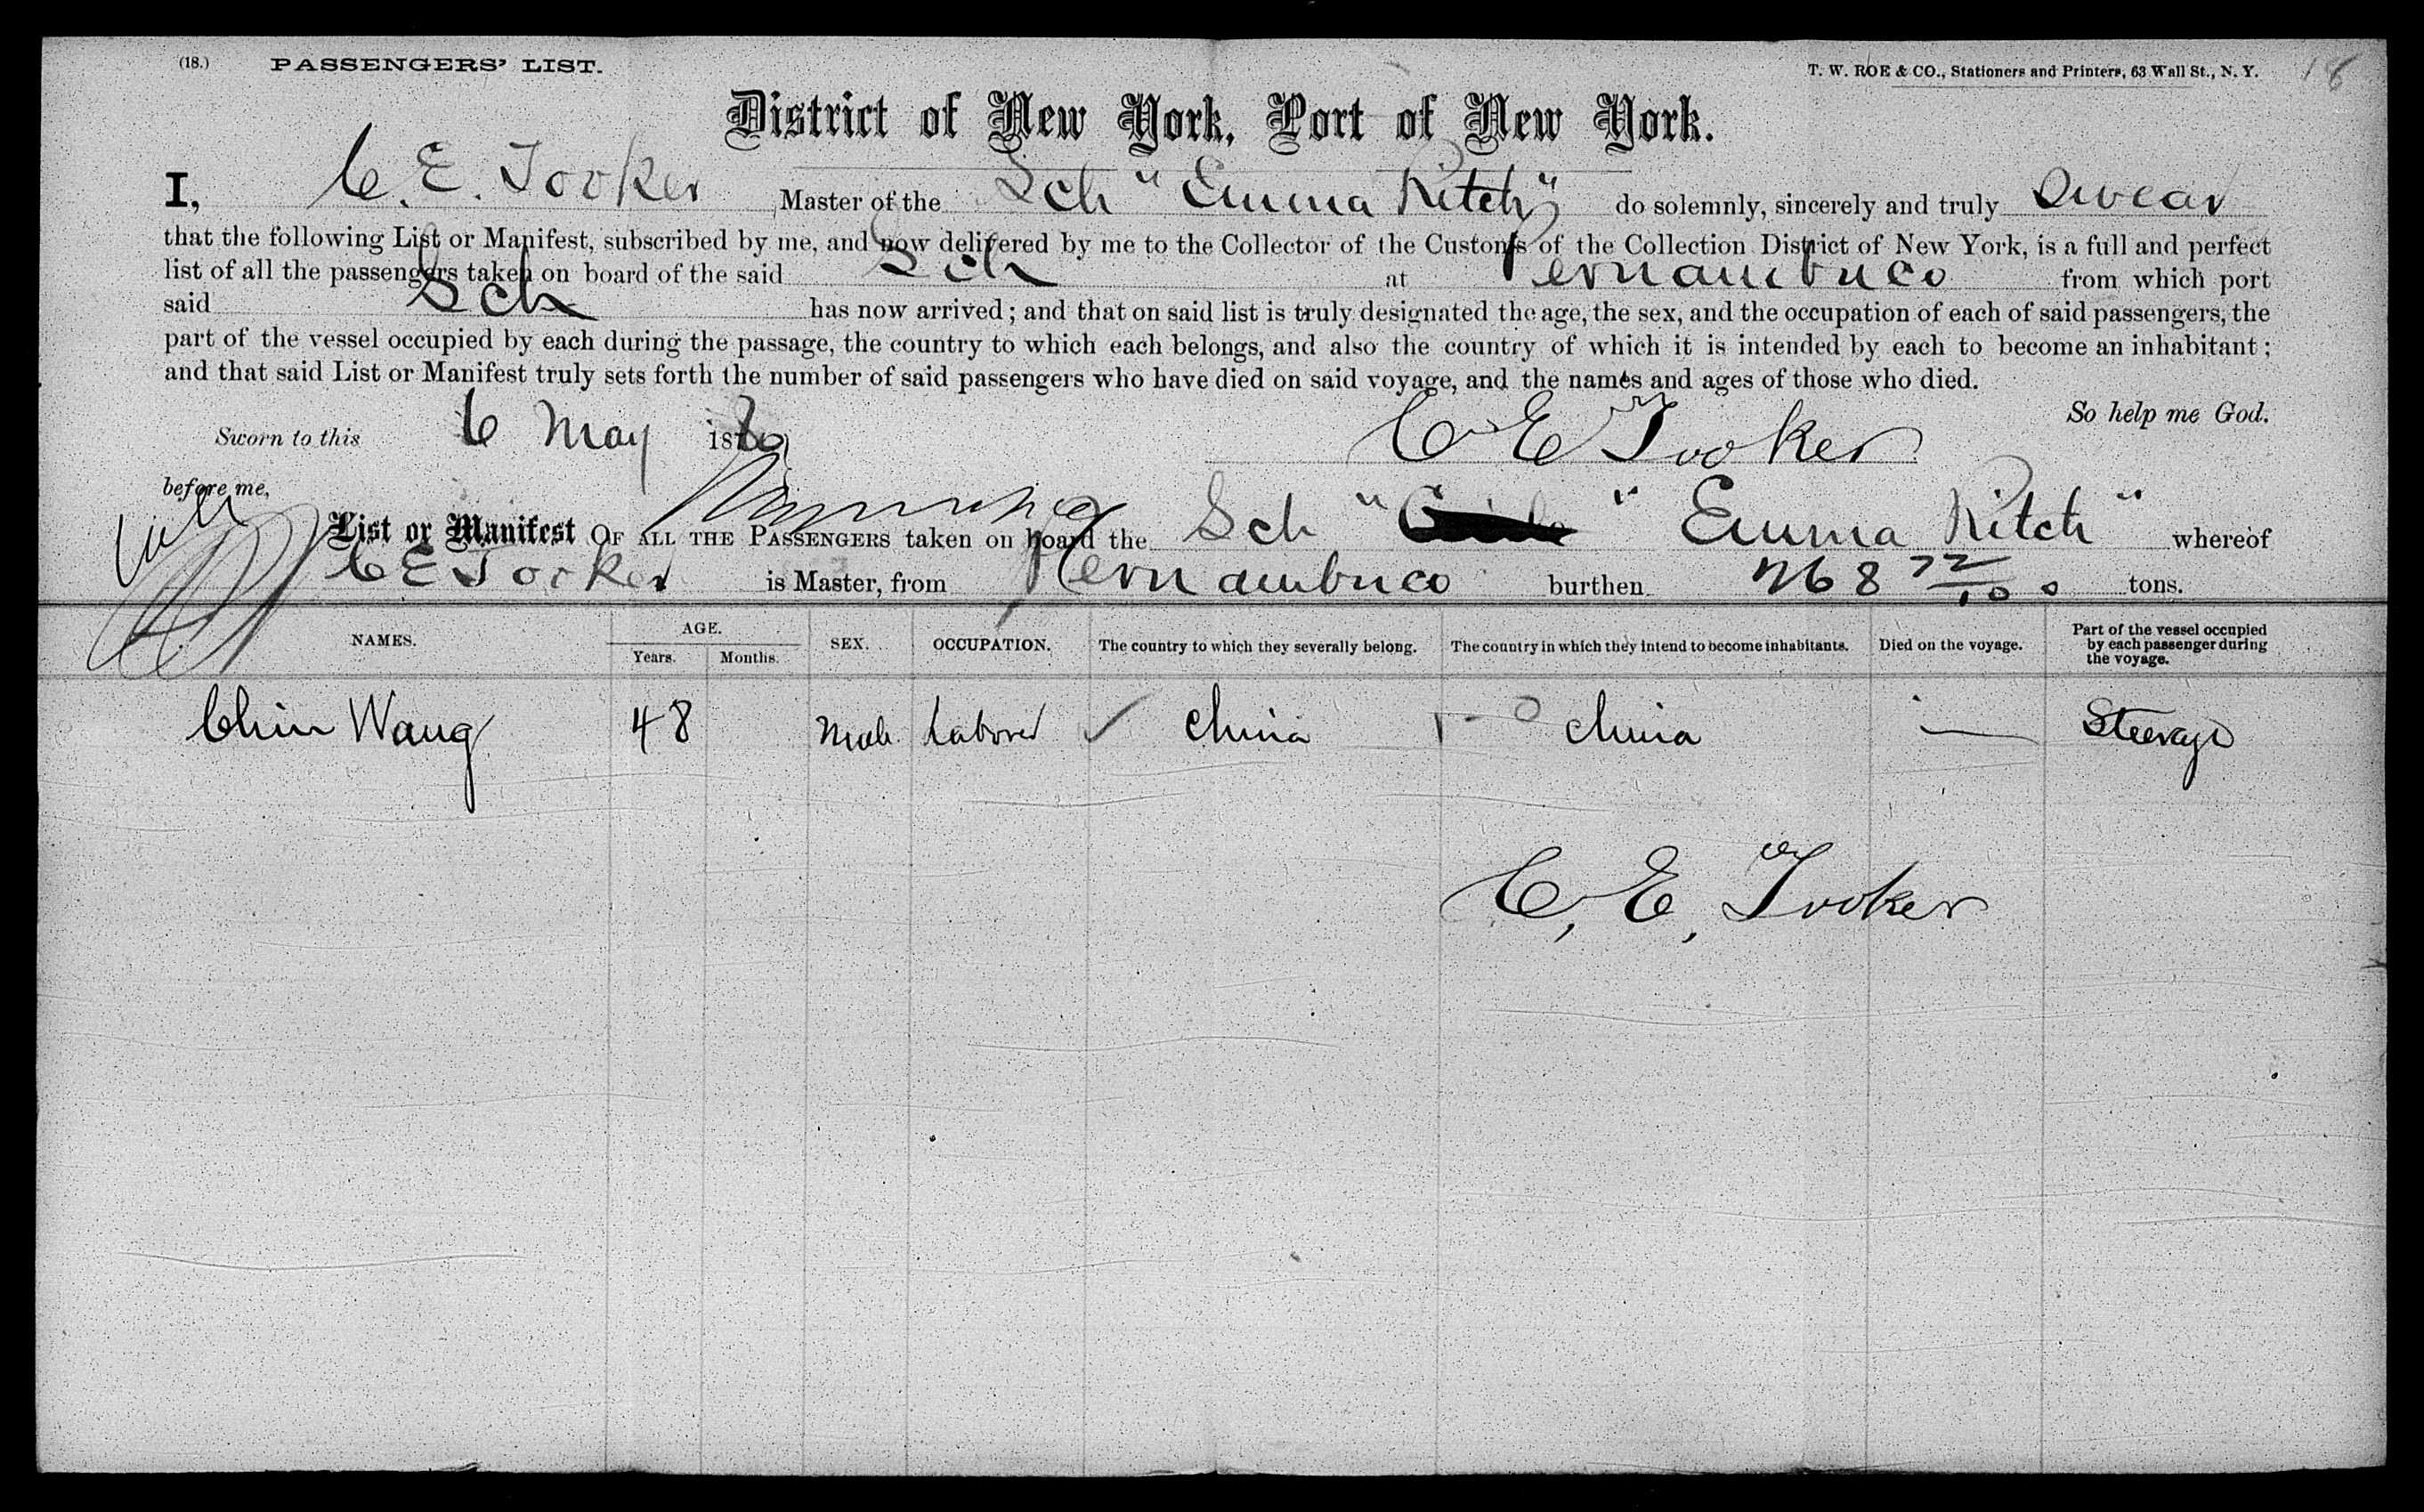 (18.) PASSENGERS' LIST. T. W. ROE & CO., Stationers and Printers, 63 Wall St., N. Y. 18
District of New York, Port of New York.
I, C. E. Tooker Master of the Sch "Emma Ritch" do solemnly, sincerely and truly Swear
that the following List or Manifest, subscribed by me, and now delivered by me to the Collector of the Customs of the Collection District of New York, is a full and perfect
list of all the passengers taken on board of the said Sch at Pernambuco from which port
said Sch has now arrived; and that on said list is truly designated the age, the sex, and the occupation of each of said passengers, the
part of the vessel occupied by each during the passage, the country to which each belongs, and also the country of which it is intended by each to become an inhabitant;
and that said List or Manifest truly sets forth the number of said passengers who have died on said voyage, and the names and ages of those who died.
So help me God.
Sworn to this 6 May 18 C E Tooker
before me,
List or Manifest OF ALL THE PASSENGERS taken on board the Sch " " Emma Ritch " whereof
C E Tooker is Master, from Pernambuco burthen 268 72/100 tons.
NAMES. AGE. Years. Months. SEX. OCCUPATION. The country to which they severally belong. The country in which they intend to become inhabitants. Died on the voyage. Part of the vessel occupied by each passenger during the voyage.
Chin Wang 48 Male Laborer China China — Steerage
C. E. Tooker